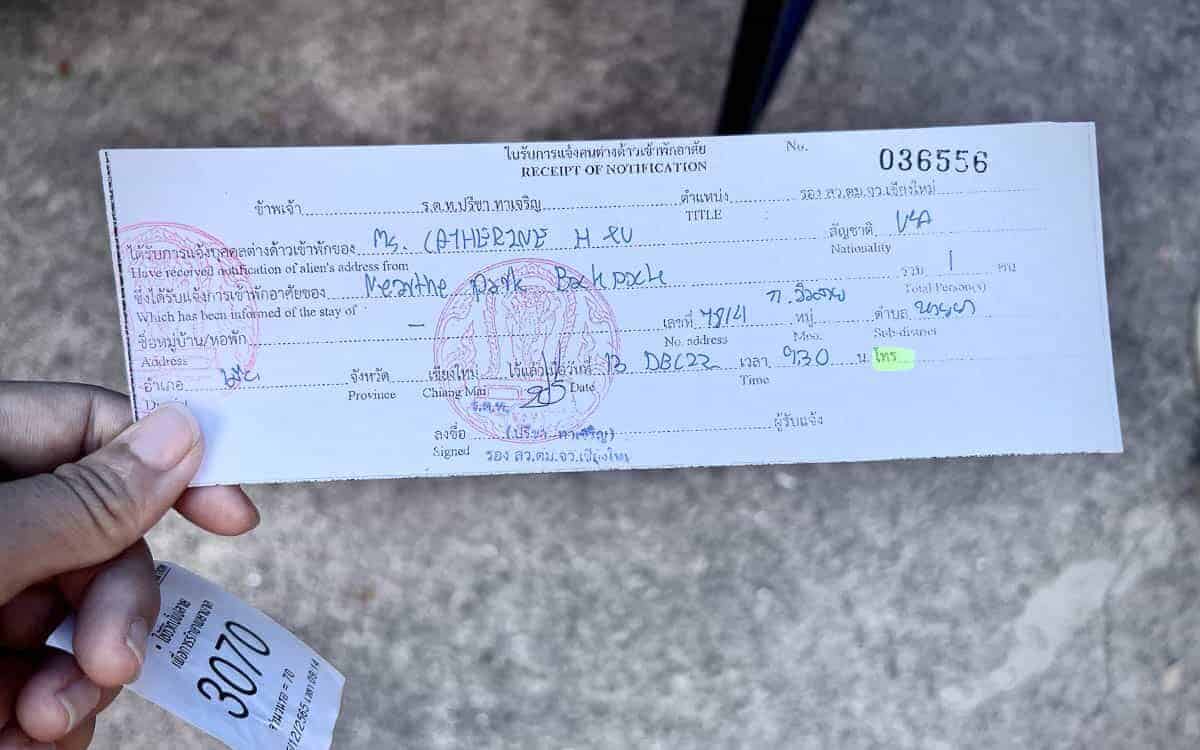 ใบรับการแจ้งคนต่างด้าวเข้าพักอาศัย No. 036556
RECEIPT OF NOTIFICATION
ข้าพเจ้า ร.ต.ท.ปรีชา ทาเจริญ ตำแหน่ง รอง สว.ตม.จว.เชียงใหม่
TITLE
ได้รับการแจ้งบุคคลต่างด้าวเข้าพักของ Ms. CATHERINE H XU สัญชาติ USA
Have received notification of alien's address from Nationality
ซึ่งได้รับแจ้งการเข้าพักอาศัยของ Park รวม 1 คน
Which has been informed of the stay of Total Person(s)
ชื่อหมู่บ้าน/หอพัก - เลขที่ 78/4 หมู่ ตำบล
Address No. address Moo. Sub-district
อำเภอ จังหวัด เชียงใหม่ ไว้แล้วเมื่อวันที่ 13 DEC 22 เวลา 930 น. โทร
Province Chiang Mai Date Time
ร.ต.ท.
ลงชื่อ (ปรีชา ทาเจริญ) ผู้รับแจ้ง
Signed รอง สว.ตม.จว.เชียงใหม่
3070
จำนวนรอ = 70
/12/2565 เวลา 09:14